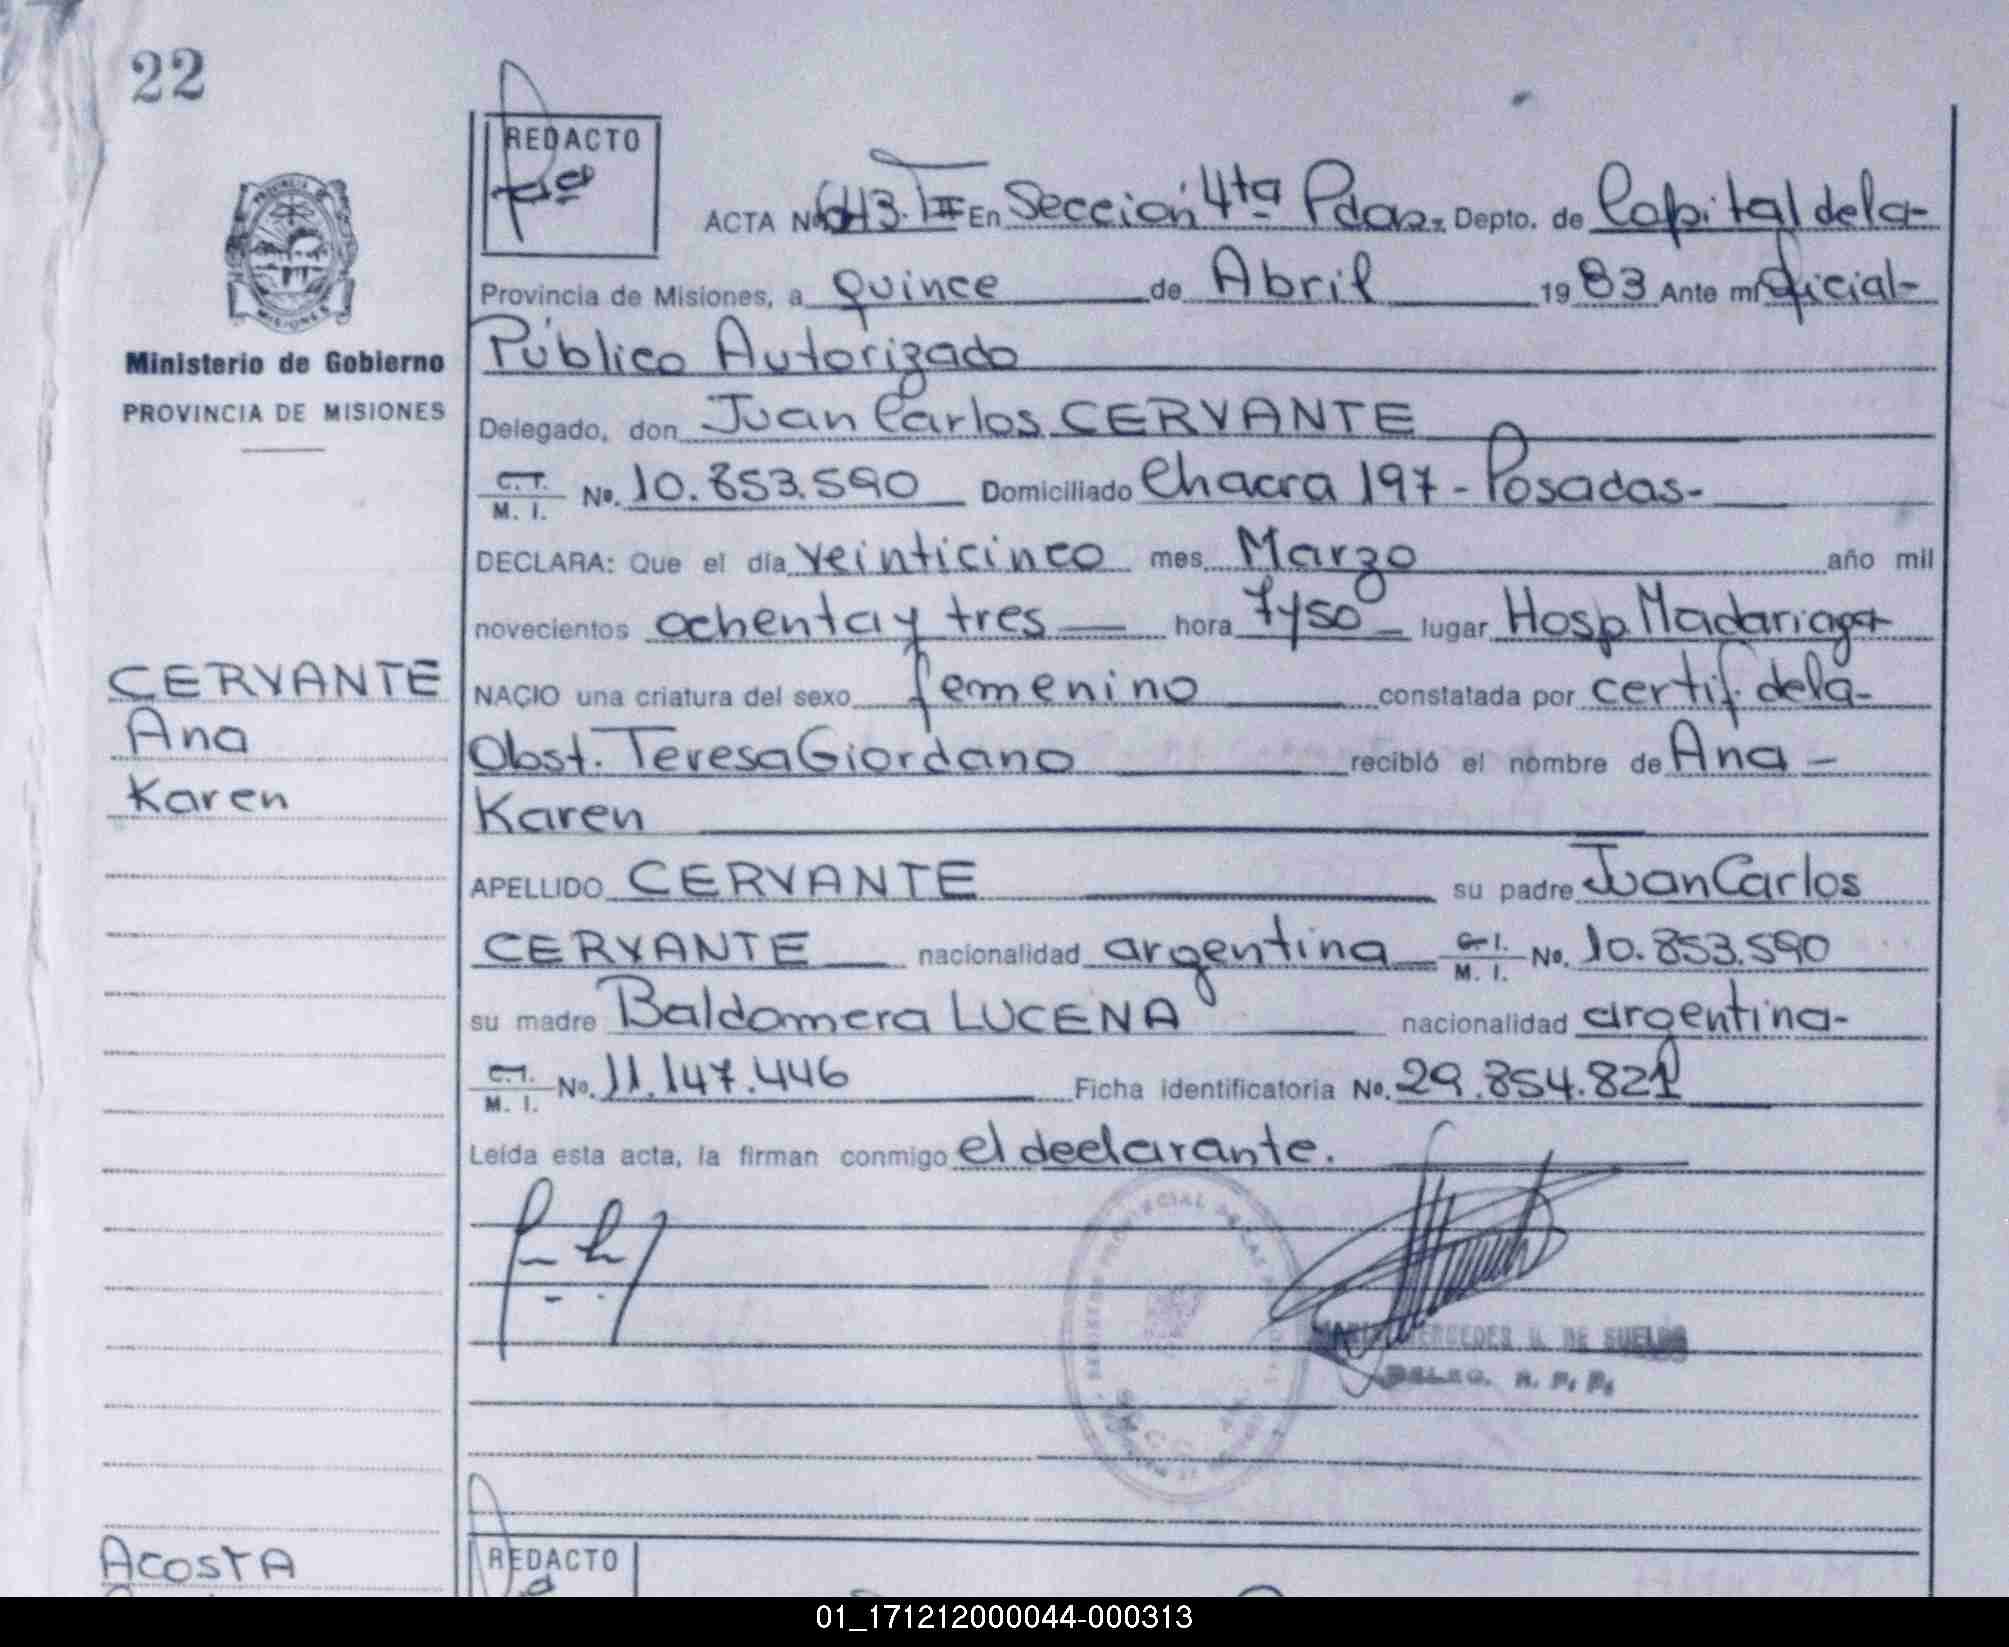 22
REDACTO
ACTA No. 643. T II En Sección 4ta Pdas. Depto. de Capital de la-
Provincia de Misiones, a quince de Abril 1983 Ante mi Oficial-
Ministerio de Gobierno
PROVINCIA DE MISIONES
Público Autorizado
Delegado, don Juan Carlos CERVANTE
C.I. M. I. No. 10.853.590 Domiciliado Chacra 197 - Posadas-
DECLARA: Que el día veinticinco mes Marzo año mil
novecientos ochenta y tres hora 7y50 lugar Hosp. Madariaga
CERVANTE
Ana
Karen
NACIO una criatura del sexo femenino constatada por certif. de la-
Obst. Teresa Giordano recibió el nombre de Ana -
Karen
APELLIDO CERVANTE su padre Juan Carlos
CERVANTE nacionalidad argentina C.I. M. I. No. 10.853.590
su madre Baldomera LUCENA nacionalidad argentina-
C.I. M. I. No. 11.147.446 Ficha identificatoria No. 29.854.821
Leída esta acta, la firman conmigo el declarante.
MERCEDES DE SUELDS
DELEG. R. P. P.
ACOSTA
REDACTO
01_171212000044-000313